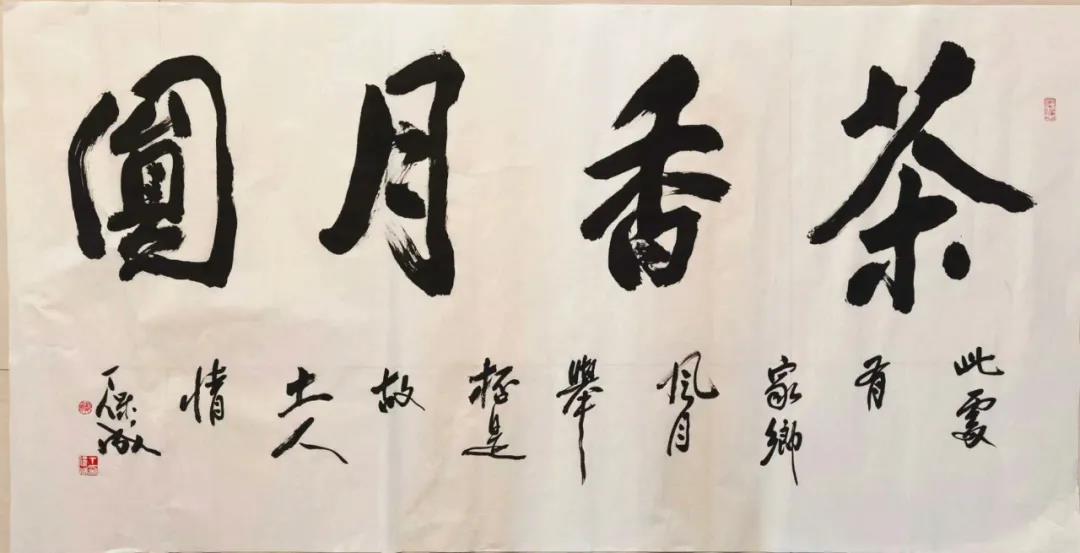 茶香月圓
此處
有
家鄉
風月
舉
杯是
故
土人
情